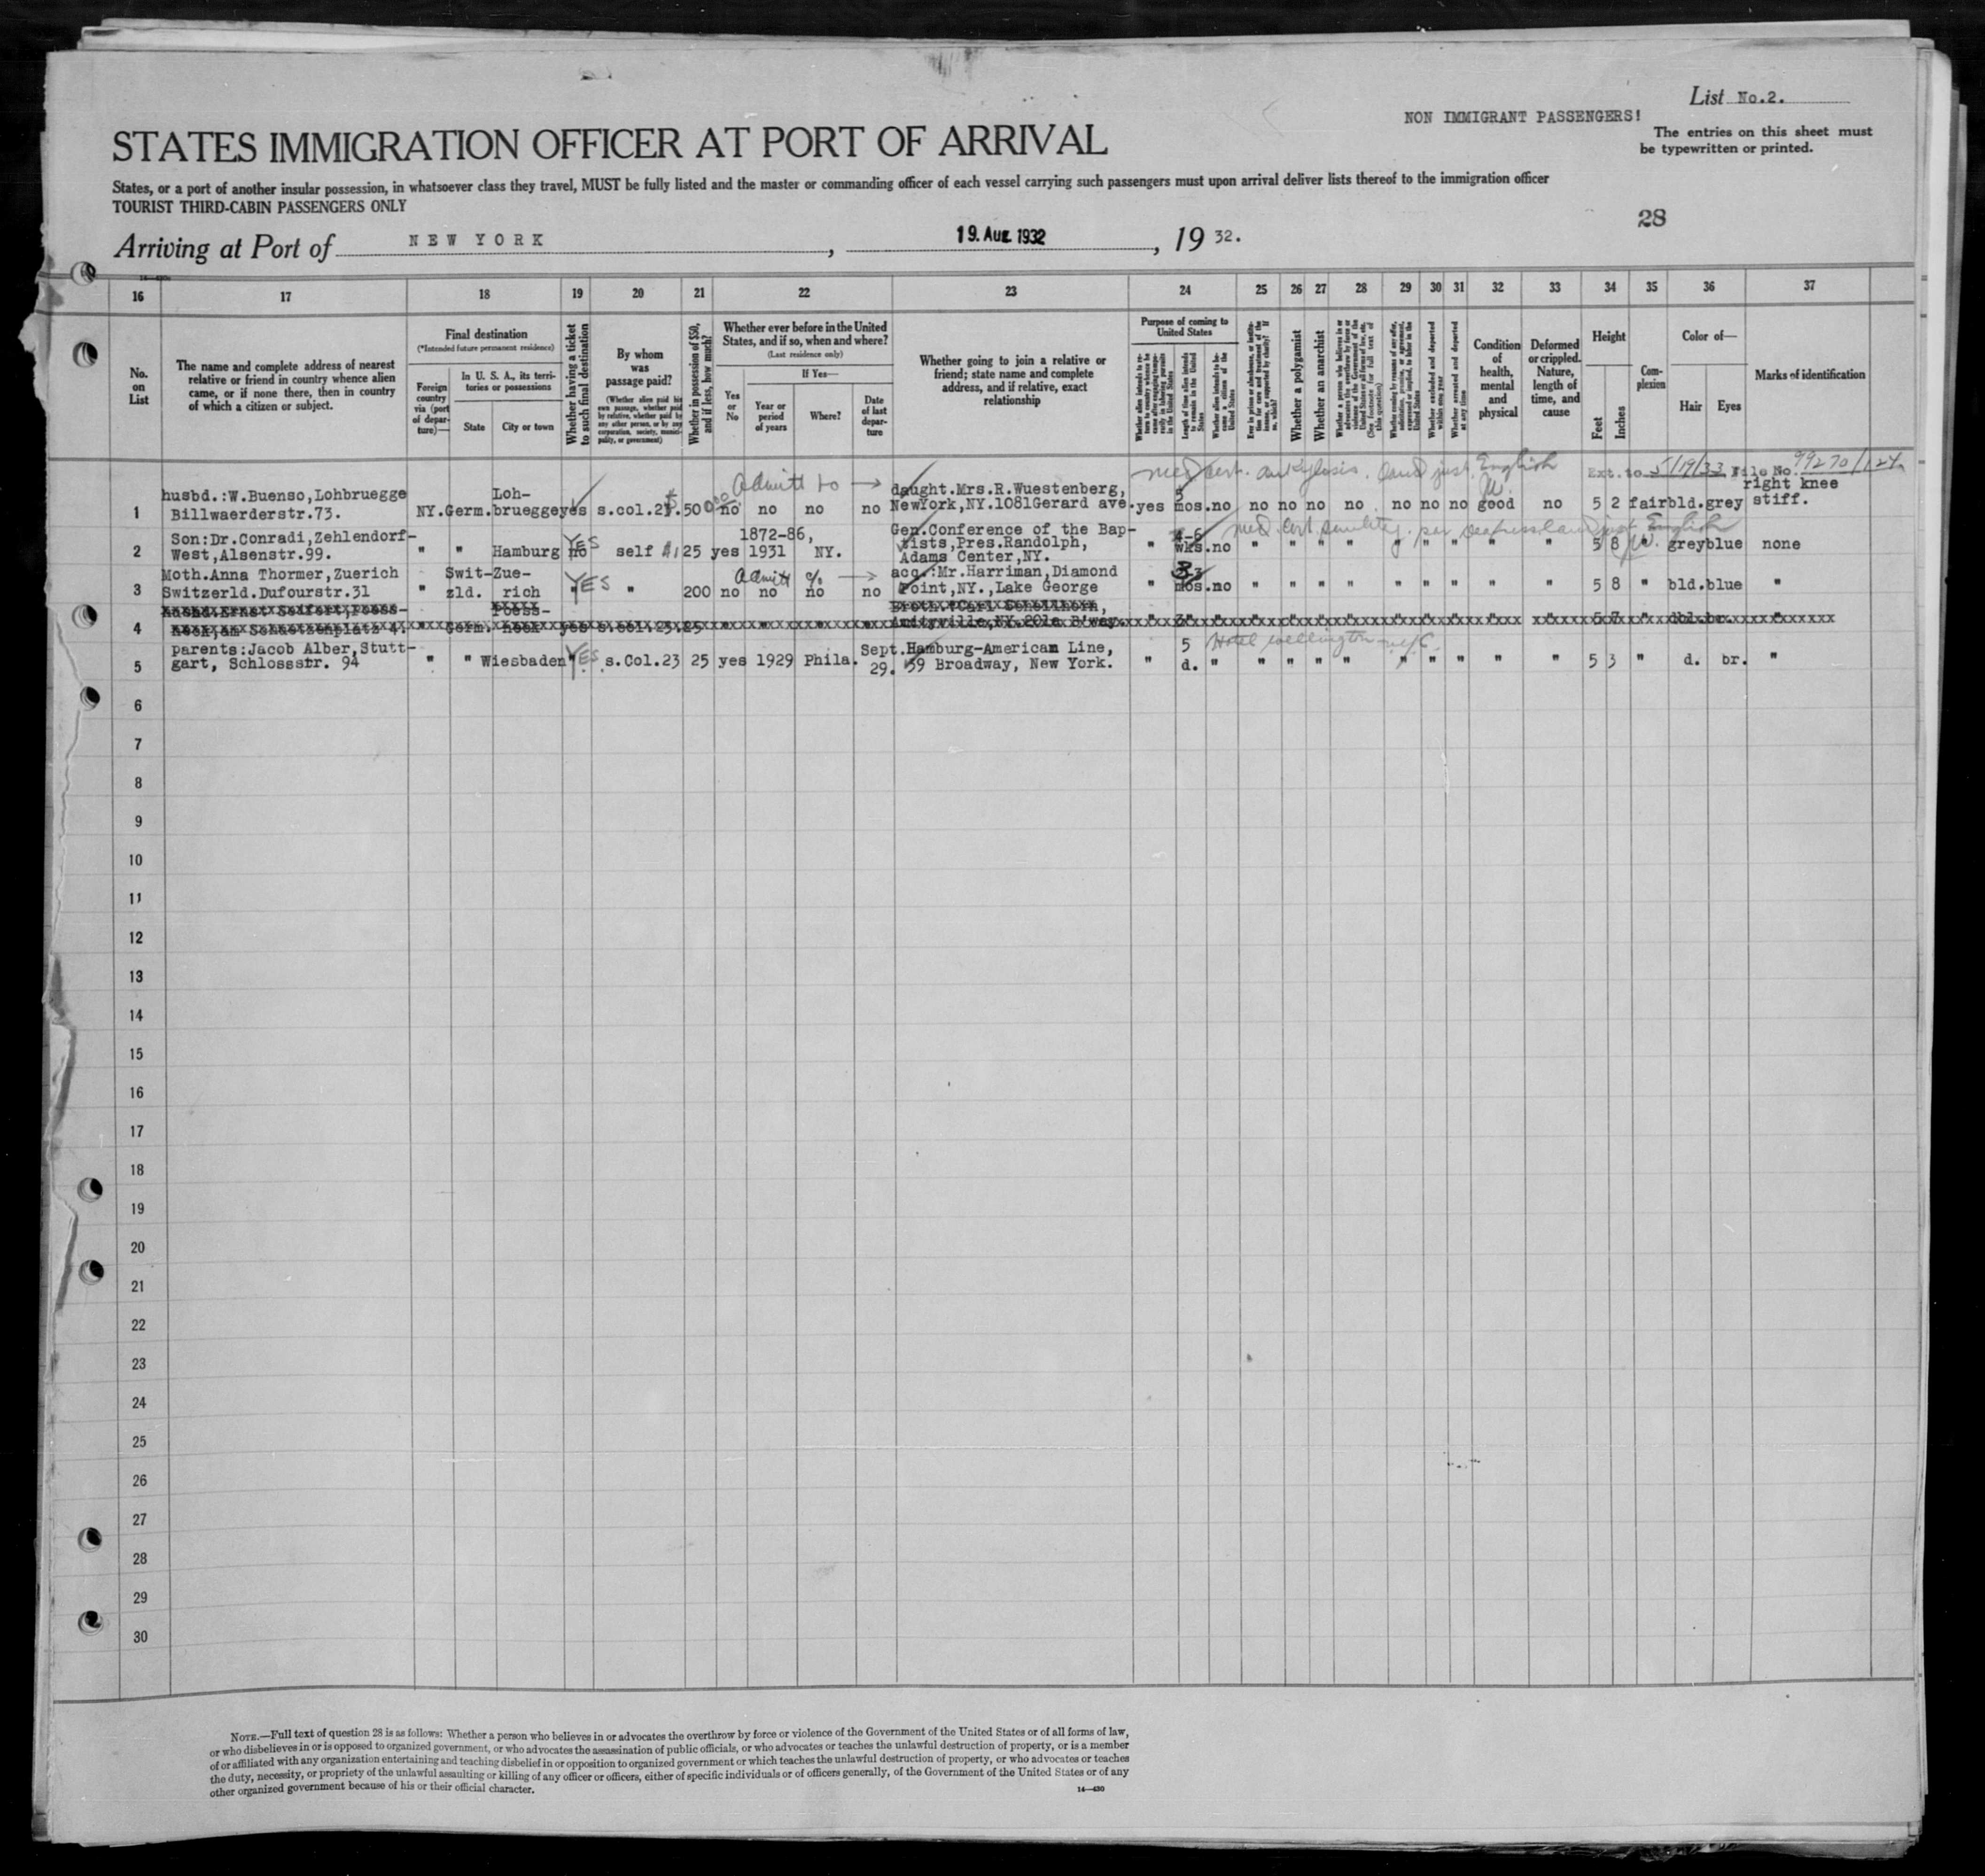 List No.2.
NON IMMIGRANT PASSENGERS!
The entries on this sheet must
be typewritten or printed.
STATES IMMIGRATION OFFICER AT PORT OF ARRIVAL
States, or a port of another insular possession, in whatsoever class they travel, MUST be fully listed and the master or commanding officer of each vessel carrying such passengers must upon arrival deliver lists thereof to the immigration officer
TOURIST THIRD-CABIN PASSENGERS ONLY
28
Arriving at Port of NEW YORK, 19. Aug. 1932, 19 32.
16 17 18 19 20 21 22 23 24 25 26 27 28 29 30 31 32 33 34 35 36 37
No.
on
List
The name and complete address of nearest
relative or friend in country whence alien
came, or if none there, then in country
of which a citizen or subject.
Final destination
(*Intended future permanent residence)
Foreign
country
via (port
of depar-
ture)—
In U. S. A., its terri-
tories or possessions
State
City or town
Whether having a ticket
to such final destination
By whom
was
passage paid?
(Whether alien paid his
own passage, whether paid
by relative, whether paid by
any other person, or by any
corporation, society, munici-
pality, or government)
Whether in possession of $50,
and if less, how much?
Whether ever before in the United
States, and if so, when and where?
(Last residence only)
Yes
or
No
If Yes—
Year or
period
of years
Where?
Date
of last
depar-
ture
Whether going to join a relative or
friend; state name and complete
address, and if relative, exact
relationship
Purpose of coming to
United States
Length of time alien intends
to remain in the United
States
Whether alien intends to be-
come a citizen of the
United States
Whether a polygamist
Whether an anarchist
Condition
of
health,
mental
and
physical
Deformed
or crippled.
Nature,
length of
time, and
cause
Height
Feet
Inches
Com-
plexion
Color of—
Hair
Eyes
Marks of identification
med cert. ankylosis. English
Ext. to 5/19/33 File No. 99270/124
1 husbd.:W.Buenso,Lohbruegge
Billwaerderstr.73. NY.Germ. Loh-
bruegge yes s.col.2 $.500 no no no no Admitt to
daught.Mrs.R.Wuestenberg,
NewYork,NY.1081Gerard ave. yes 5 mos. no no no no no no no no good no 5 2 fair bld. grey right knee
stiff.
2 Son:Dr.Conradi,Zehlendorf-
West,Alsenstr.99. " " Hamburg no YES self 25 yes 1872-86,
1931 NY.
Gen.Conference of the Bap-
tists,Pres.Randolph,
Adams Center,NY. " 4-6
wks. no " " " " " " " " " 5 8 " grey blue none
med. cert. senility. English
3 Moth.Anna Thormer,Zuerich
Switzerld.Dufourstr.31 " Swit-
zld. Zue-
rich " YES " 200 no no no no Admitt
acq.:Mr.Harriman,Diamond
Point,NY.,Lake George " 3 mos. no " " " " " " " " " 5 8 " bld. blue "
4 husbd.Ernst Seifert,Poess-
neck,am Schuetzenplatz 4. Germ. Poess-
neck yes s.col.23.25
Broth.:Carl Schellhorn,
Amityville,NY.201a B'way. 5 7 dbl.br.
5 parents:Jacob Alber,Stutt-
gart, Schlossstr. 94 " " Wiesbaden " YES s.Col.23 25 yes 1929 Phila. Sept.
29.
Hamburg-American Line,
39 Broadway, New York. " 5
d. " " " " " " " " " " 5 3 " d. br. "
Hotel Wellington NYC.
6
7
8
9
10
11
12
13
14
15
16
17
18
19
20
21
22
23
24
25
26
27
28
29
30
NOTE.—Full text of question 28 is as follows: Whether a person who believes in or advocates the overthrow by force or violence of the Government of the United States or of all forms of law,
or who disbelieves in or is opposed to organized government, or who advocates the assassination of public officials, or who advocates or teaches the unlawful destruction of property, or is a member
of or affiliated with any organization entertaining and teaching disbelief in or opposition to organized government or which teaches the unlawful destruction of property, or who advocates or teaches
the duty, necessity, or propriety of the unlawful assaulting or killing of any officer or officers, either of specific individuals or of officers generally, of the Government of the United States or of any
other organized government because of his or their official character.
14—430